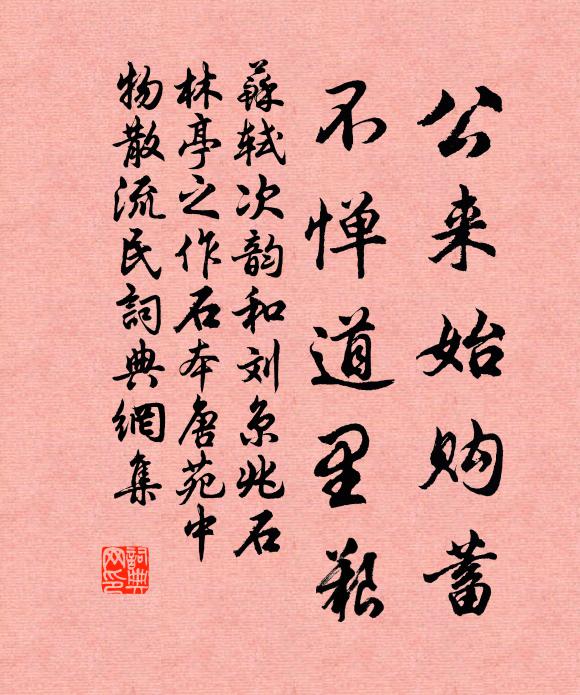 公来始购蓄
不惮道里艱
蘇轼次韵和刘京兆石
林亭之作石本唐苑中
物散流民詞典網集
詞典网印